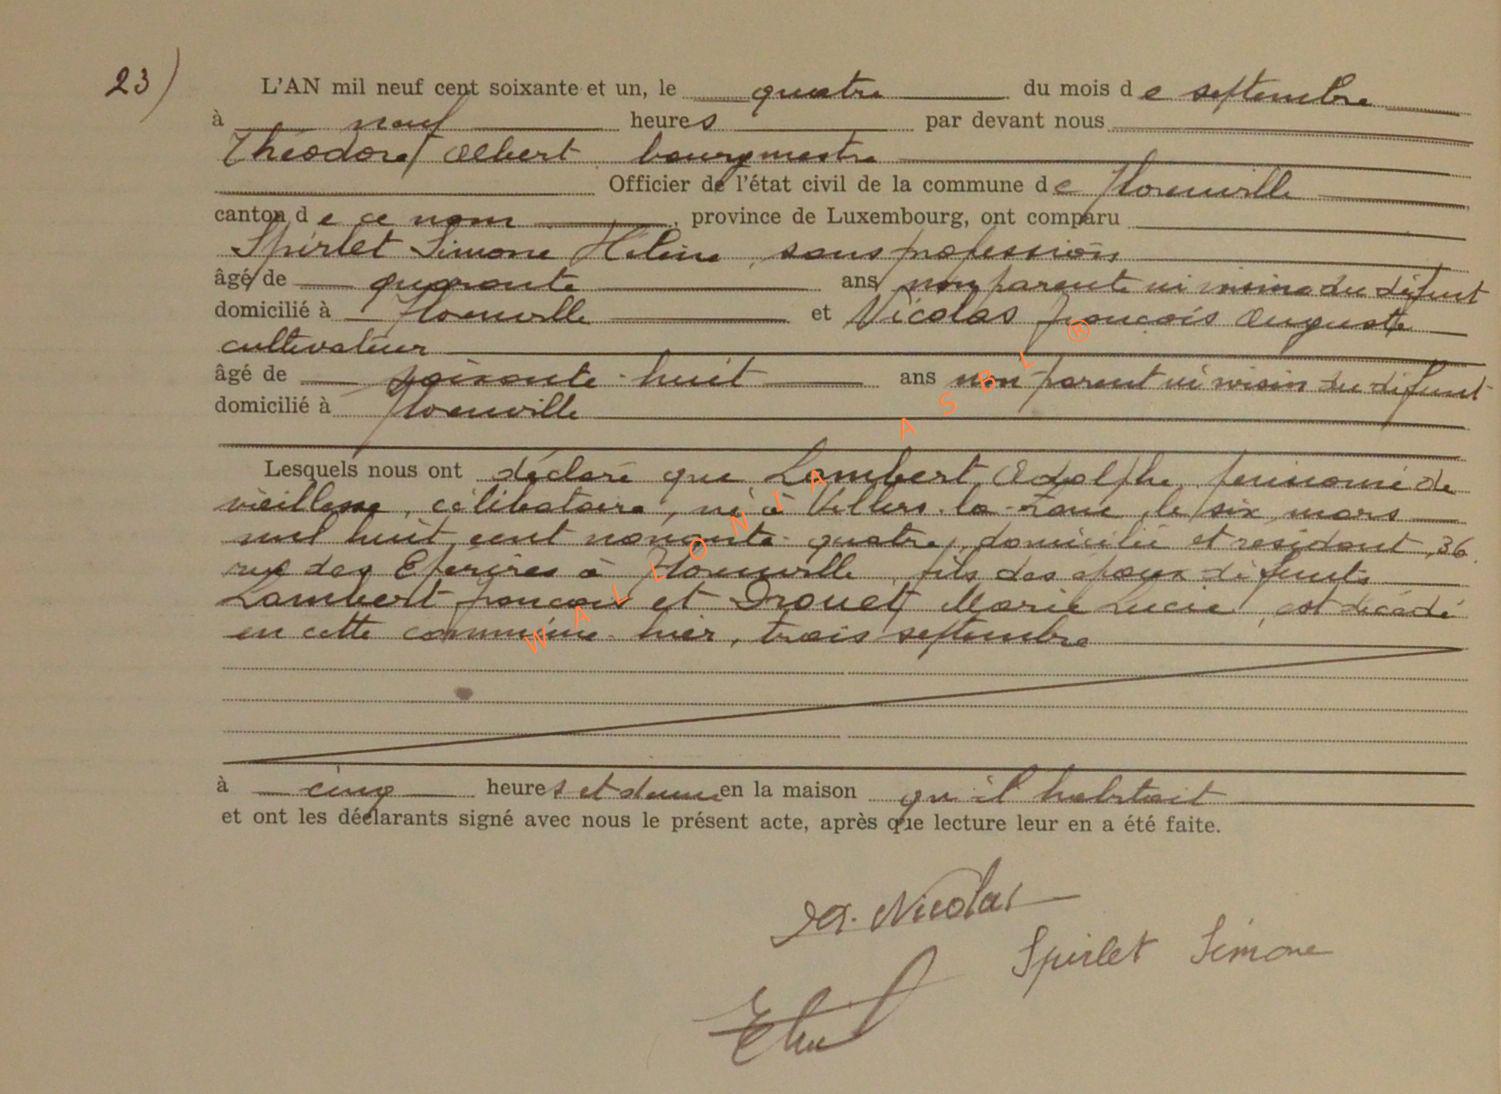 23)
L'AN mil neuf cent soixante et un, le quatre du mois de septembre
à neuf heures par devant nous
Théodore Albert bourgmestre
Officier de l'état civil de la commune de Florenville
canton de ce nom, province de Luxembourg, ont comparu
Spirlet Simone Hélène, sans profession
âgé de quarante ans non parente ni voisine du défunt
domicilié à Florenville et Nicolas françois Auguste
cultivateur
âgé de soixante-huit ans non parent ni voisin du défunt
domicilié à Florenville
Lesquels nous ont déclaré que Lambert, Adolphe, pensionné de
vieillesse, célibataire, né à Villers-la-Loue, le six mars
mil huit cent nonante-quatre, domicilié et résidant, 36
rue des Epérires à Florenville, fils des époux défunts
Lambert françois et Drouet Marie Lucie, est décédé
en cette commune hier, trois septembre
à cinq heures et demie en la maison qu'il habitait
et ont les déclarants signé avec nous le présent acte, après que lecture leur en a été faite.
Nicolas
Spirlet Simone
WALLONIA ASBL ®